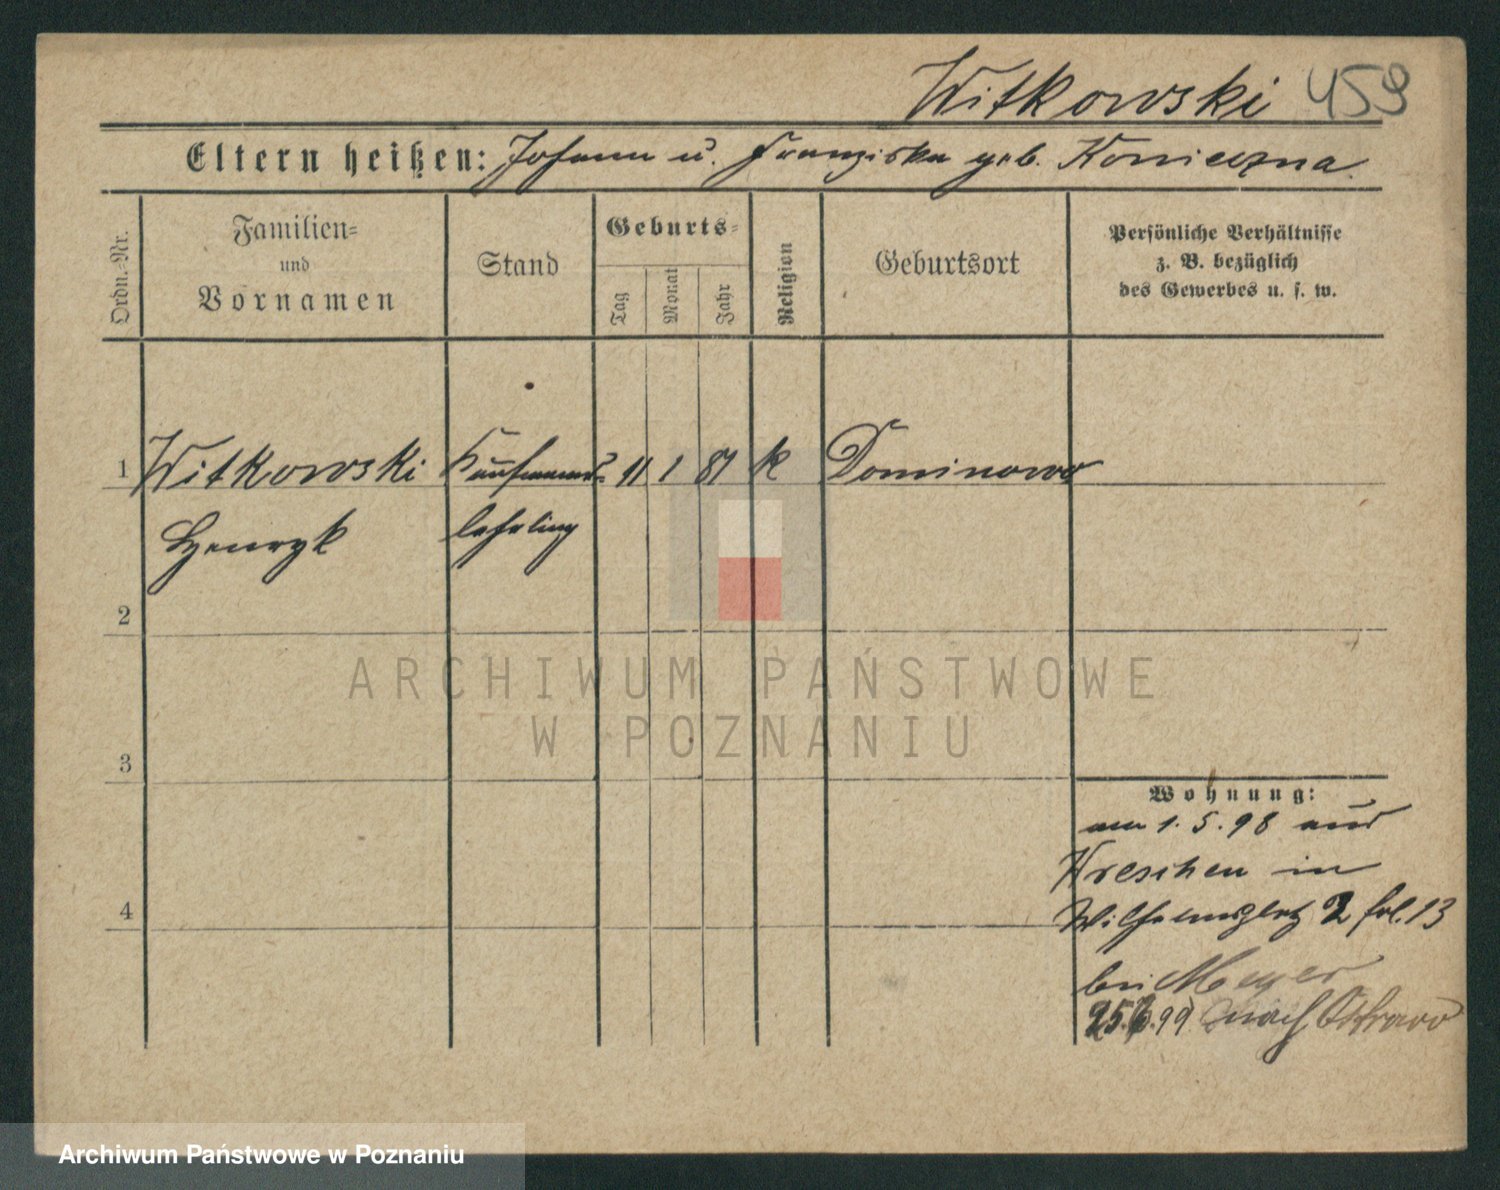 Witkowski 459
Eltern heißen: Johann u. Franziska geb. Konieczna
Ordn.-Nr.
Familien-
und
Vornamen
Stand
Geburts-
Tag
Monat
Jahr
Religion
Geburtsort
Persönliche Verhältnisse
z. B. bezüglich
des Gewerbes u. s. w.
1 Witkowski Kaufmanns- 11 1 81 k Dominowo
Henryk lehrling
2
3
4
Wohnung:
am 1. 5. 98 aus
Wreschen in
Wilhelmsplatz 2 fol. 13
bei Meyer
25.6.99 nach Ostrowo
ARCHIWUM PAŃSTWOWE
W POZNANIU
Archiwum Państwowe w Poznaniu